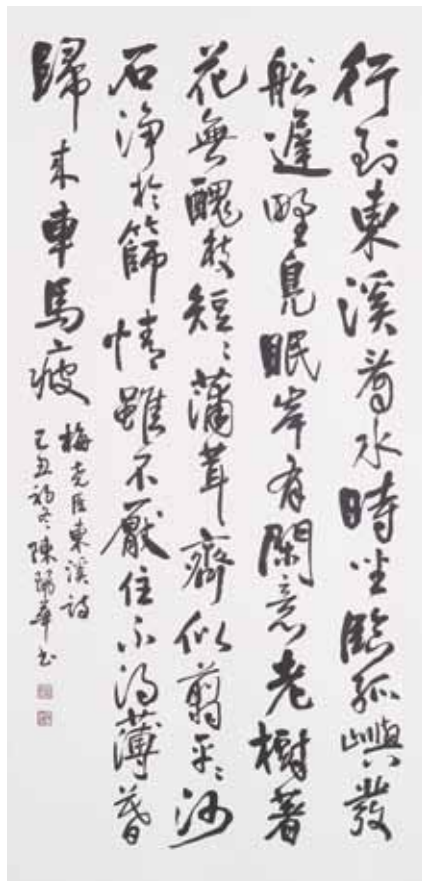 行到東溪看水時坐臨孤嶼發
船遲野鳧眠岸有閑意老樹著
花無醜枝短〻蒲茸齊似翦平〻沙
石淨於篩情雖不厭住不得薄暮
歸来車馬疲
梅堯臣東溪詩
己丑初冬陳華书